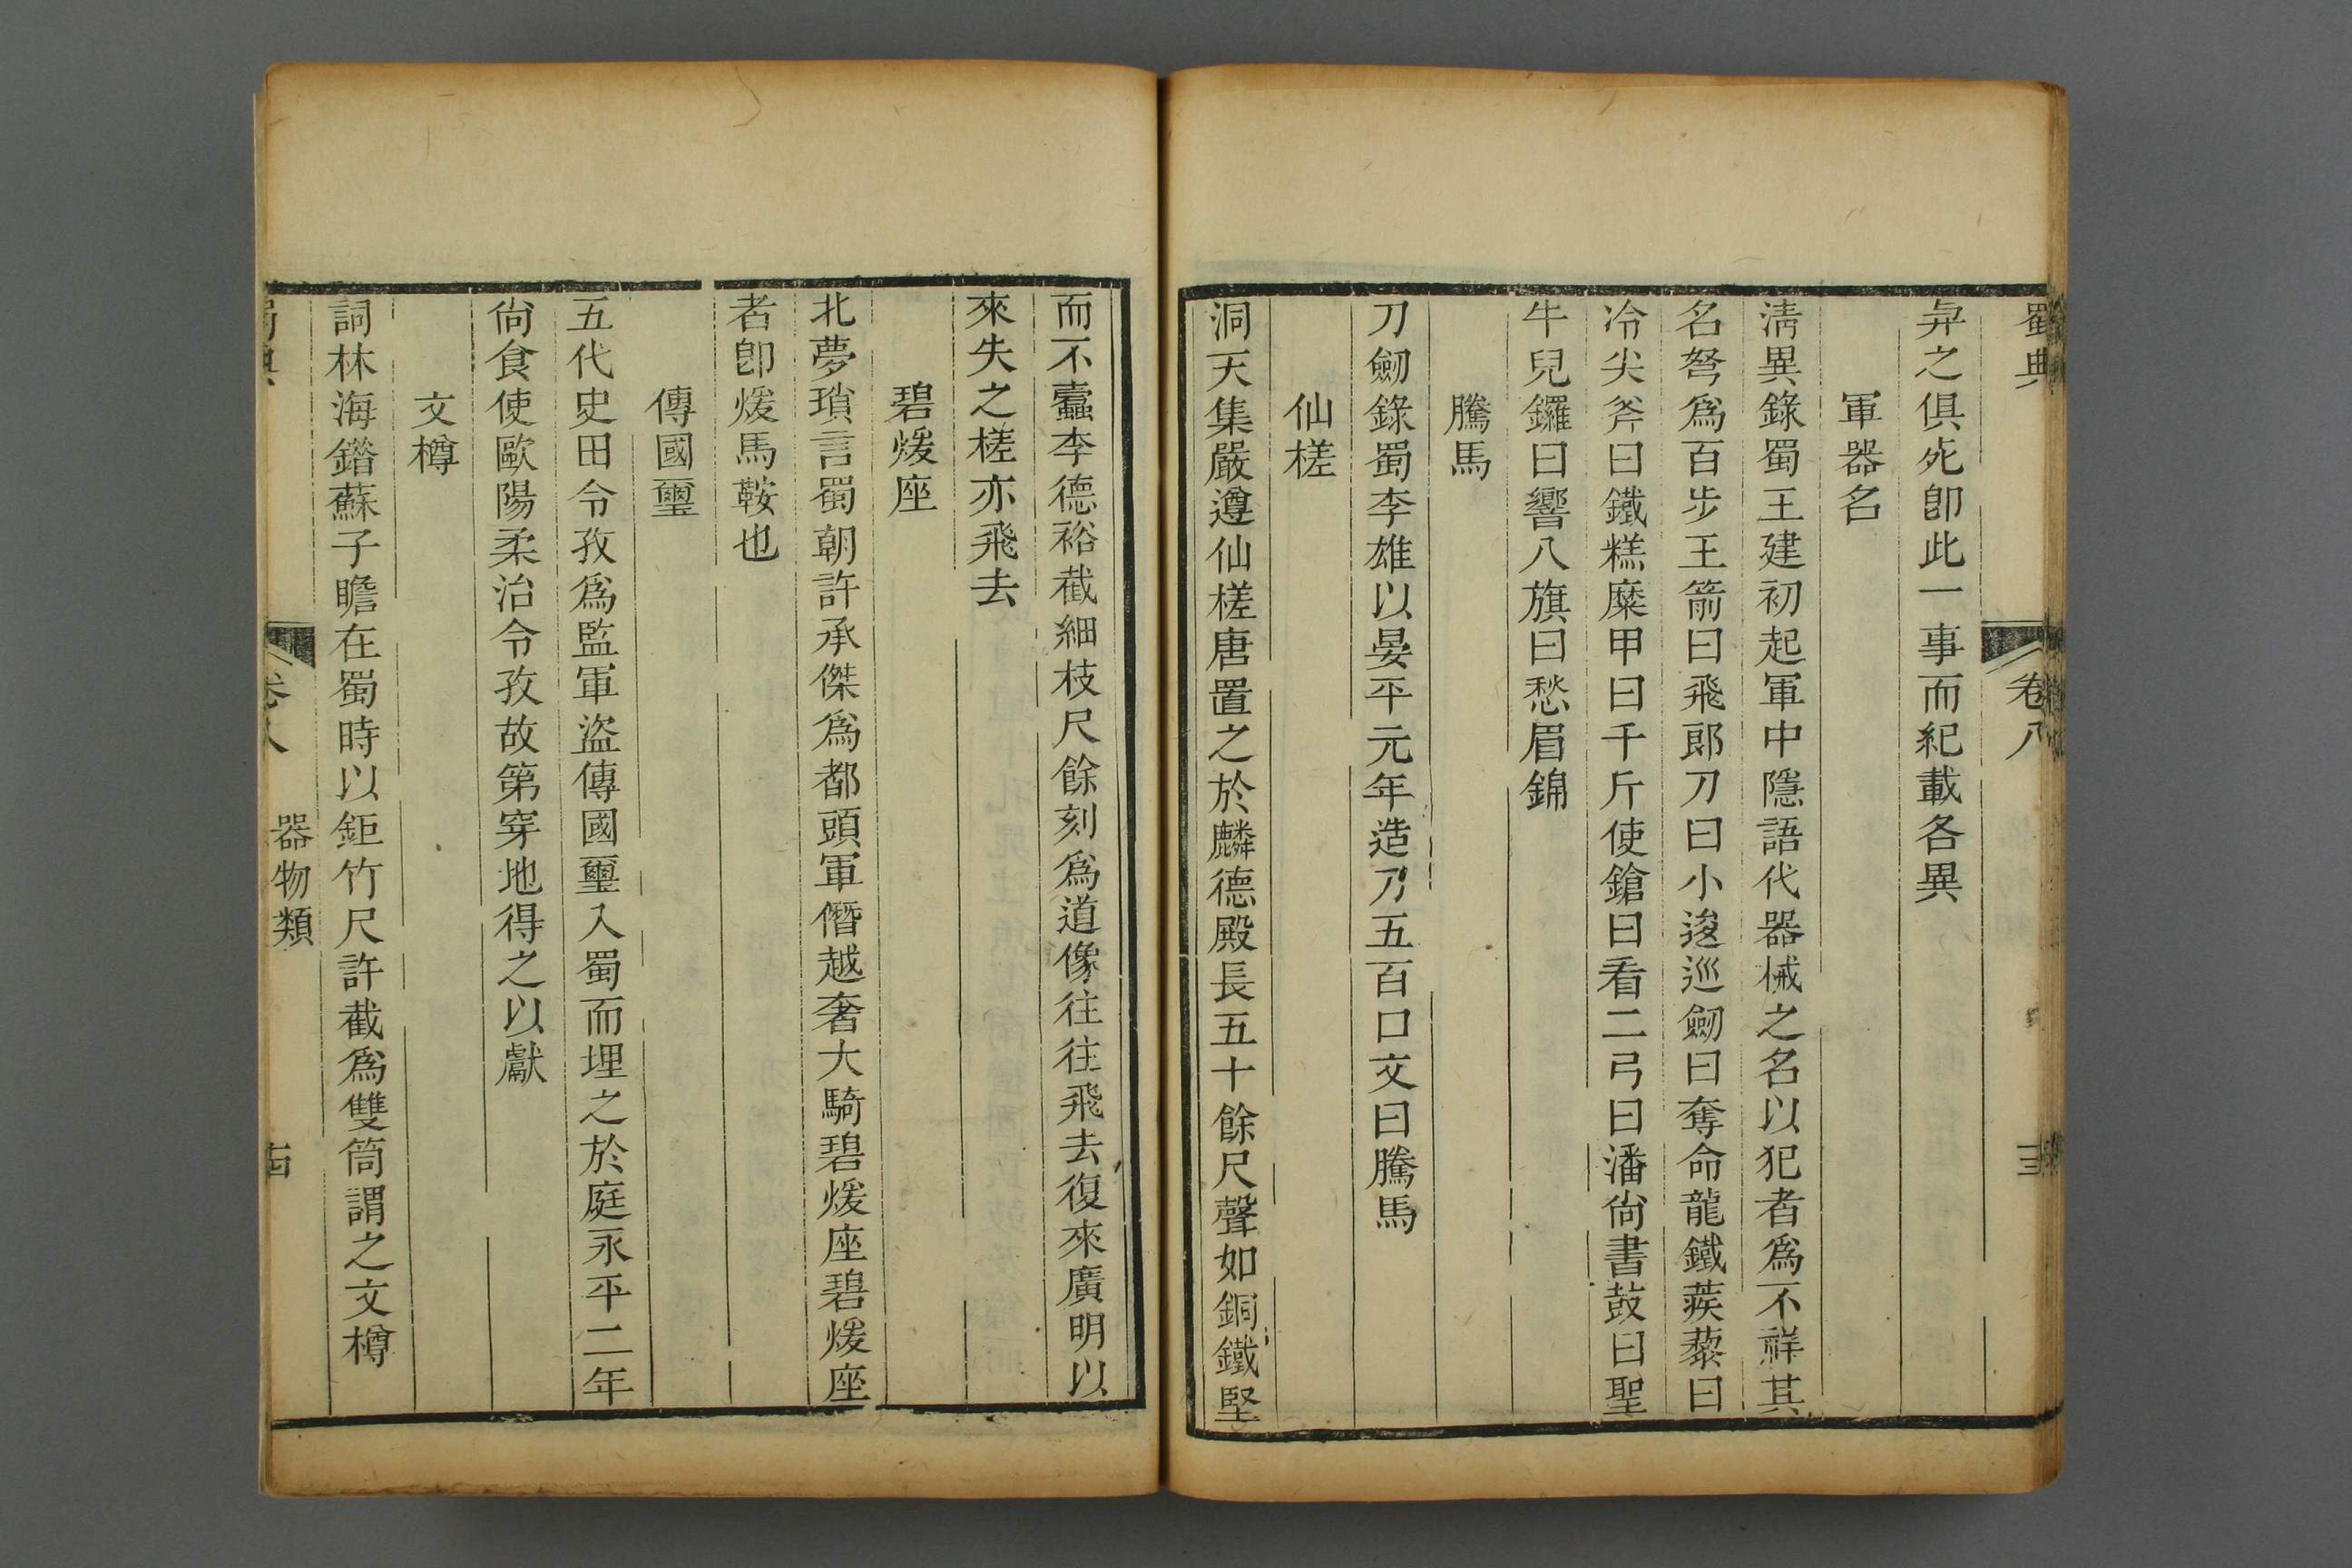 蜀典 卷八
舁之俱死卽此一事而紀載各異
軍器名
淸異錄蜀王建初起軍中隱語代器械之名以犯者爲不祥其
名弩爲百步王箭曰飛郎刀曰小逡巡劒曰奪命龍鐵蒺藜曰
冷尖斧曰鐵糕糜甲曰千斤使鎗曰看二弓曰潘尙書鼓曰聖
牛兒鑼曰響八旗曰愁眉錦
騰馬
刀劒錄蜀李雄以晏平元年造刀五百口文曰騰馬
仙槎
洞天集嚴遵仙槎唐置之於麟德殿長五十餘尺聲如銅鐵堅
而不蠹李德裕截細枝尺餘刻爲道像往往飛去復來廣明以
來失之槎亦飛去
碧煖座
北夢瑣言蜀朝許承傑爲都頭軍僭越奢大騎碧煖座碧煖座
者卽煖馬鞍也
傳國璽
五代史田令孜爲監軍盜傳國璽入蜀而埋之於庭永平二年
尙食使歐陽柔治令孜故第穿地得之以獻
文樽
詞林海錯蘇子瞻在蜀時以鉅竹尺許截爲雙筒謂之文樽
蜀典 卷八 器物類 十四